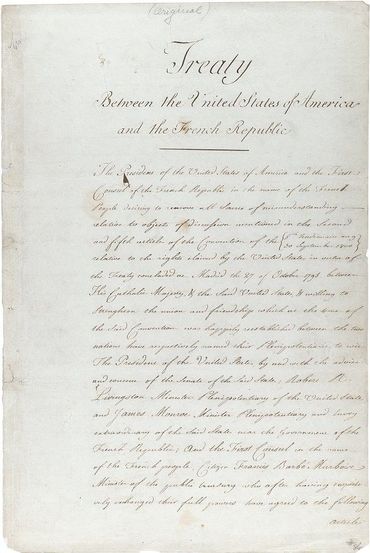 (Original)
Treaty
Between the United States of America
and the French Republic
The President of the United States of America and the First
Consul of the French Republic in the name of the French
People desiring to remove all Source of misunderstanding
relative to objects of discussion mentioned in the Second
and fifth articles of the Convention of the
30 September 1800
relative to the rights claimed by the United States in virtue of
the Treaty concluded at Madrid the 27 of October 1795, between
His Catholic Majesty, & the Said United States, & willing to
Strengthen the union and friendship which at the time of
the Said Convention was happily reestablished between the two
nations have respectively named their Plenipotentiaries, to wit
The President of the United States, by and with the advice
and consent of the Senate of the Said States, Robert R.
Livingston Minister Plenipotentiary of the United States
and James Monroe Minister Plenipotentiary and Envoy
extraordinary of the Said States near the Government of the
French Republic; And the First Consul in the name
of the French people, Citizen Francis Barbé Marbois
Minister of the public treasury who after having respect-
ively exchanged their full powers have agreed to the following
articles